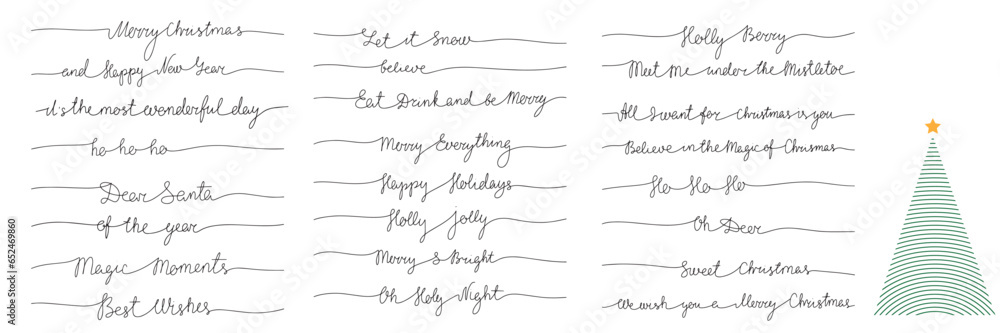 Merry Christmas
and Happy New Year
it's the most wonderful day
ho ho ho
Dear Santa
of the year
Magic Moments
Best Wishes
Let it Snow
believe
Eat Drink and be Merry
Merry Everything
Happy Holidays
Holly Jolly
Merry & Bright
Oh Holy Night
Holly Berry
Meet Me under the Mistletoe
All I want for Christmas is you
Believe in the Magic of Chrismas
Ho Ho Ho
Oh Deer
Sweet Christmas
We wish you a Merry Christmas
Adobe Stock | #652469860